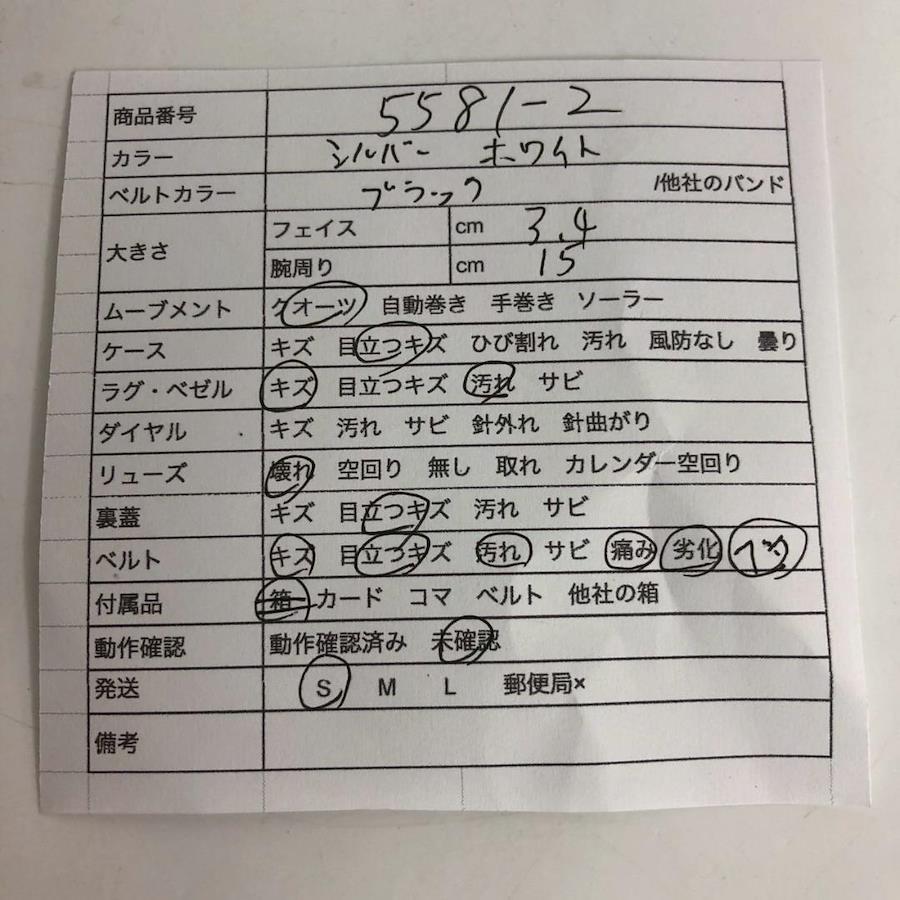 商品番号 5581-2
カラー シルバー ホワイト
ベルトカラー ブラック /他社のバンド
大きさ フェイス cm 3.4
腕周り cm 15
ムーブメント クオーツ 自動巻き 手巻き ソーラー
ケース キズ 目立つキズ ひび割れ 汚れ 風防なし 曇り
ラグ・ベゼル キズ 目立つキズ 汚れ サビ
ダイヤル キズ 汚れ サビ 針外れ 針曲がり
リューズ 壊れ 空回り 無し 取れ カレンダー空回り
裏蓋 キズ 目立つキズ 汚れ サビ
ベルト キズ 目立つキズ 汚れ サビ 痛み 劣化
付属品 箱 カード コマ ベルト 他社の箱
動作確認 動作確認済み 未確認
発送 S M L 郵便局×
備考